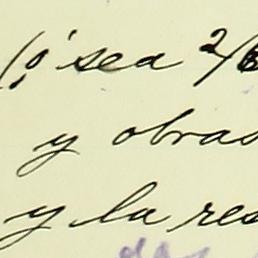 (ó sea 2/
y obras
y la res